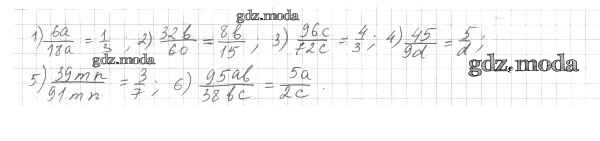 gdz.moda
1) 6a/18a = 1/3 ; 2) 32b/60 = 8b/15 ; 3) 96c/72c = 4/3 ; 4) 45/9d = 5/d ;
gdz.moda
5) 39mn/91mn = 3/7 ; 6) 95ab/38bc = 5a/2c .
gdz.moda